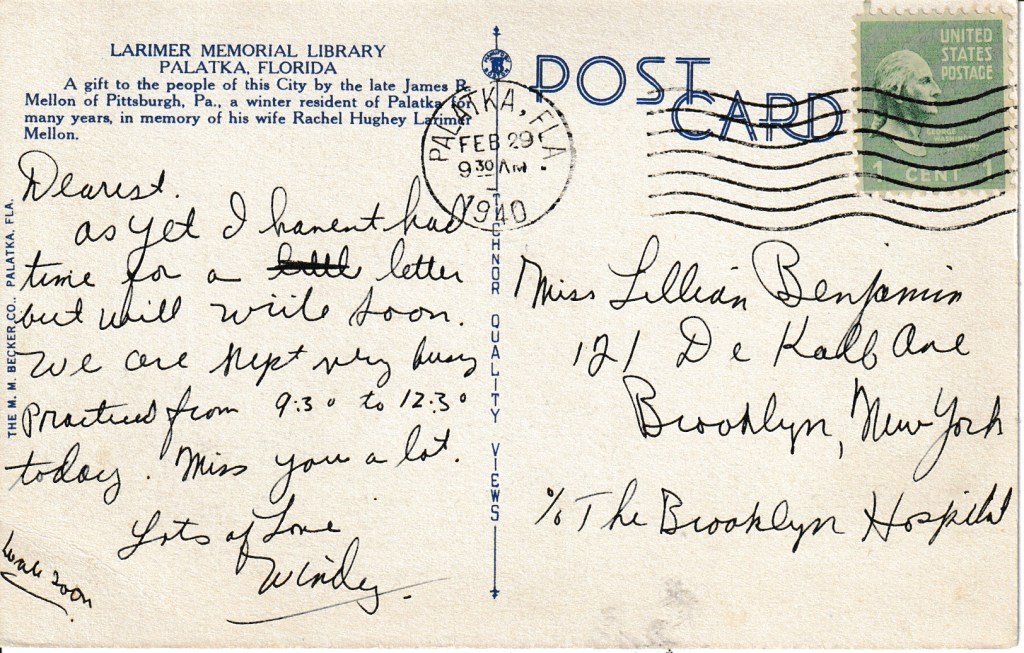 LARIMER MEMORIAL LIBRARY
PALATKA, FLORIDA
A gift to the people of this City by the late James R.
Mellon of Pittsburgh, Pa., a winter resident of Palatka for
many years, in memory of his wife Rachel Hughey Larimer
Mellon.
Dearest.
as yet I havent had
time for a letter
but will write soon.
We are kept very busy
Practiced from 9:30 to 12:30
today. Miss you a lot.
Lots of Love
Windy.
soon
THE M. M. BECKER CO., PALATKA, FLA.
TECHNOR QUALITY VIEWS
POST CARD
PALATKA, FLA.
FEB 29
9 30 AM
1940
UNITED
STATES
POSTAGE
GEORGE
WASHINGTON
1 CENT 1
Miss Lillian Benjamin
121 De Kalb Ave
Brooklyn, New York
% The Brooklyn Hospital